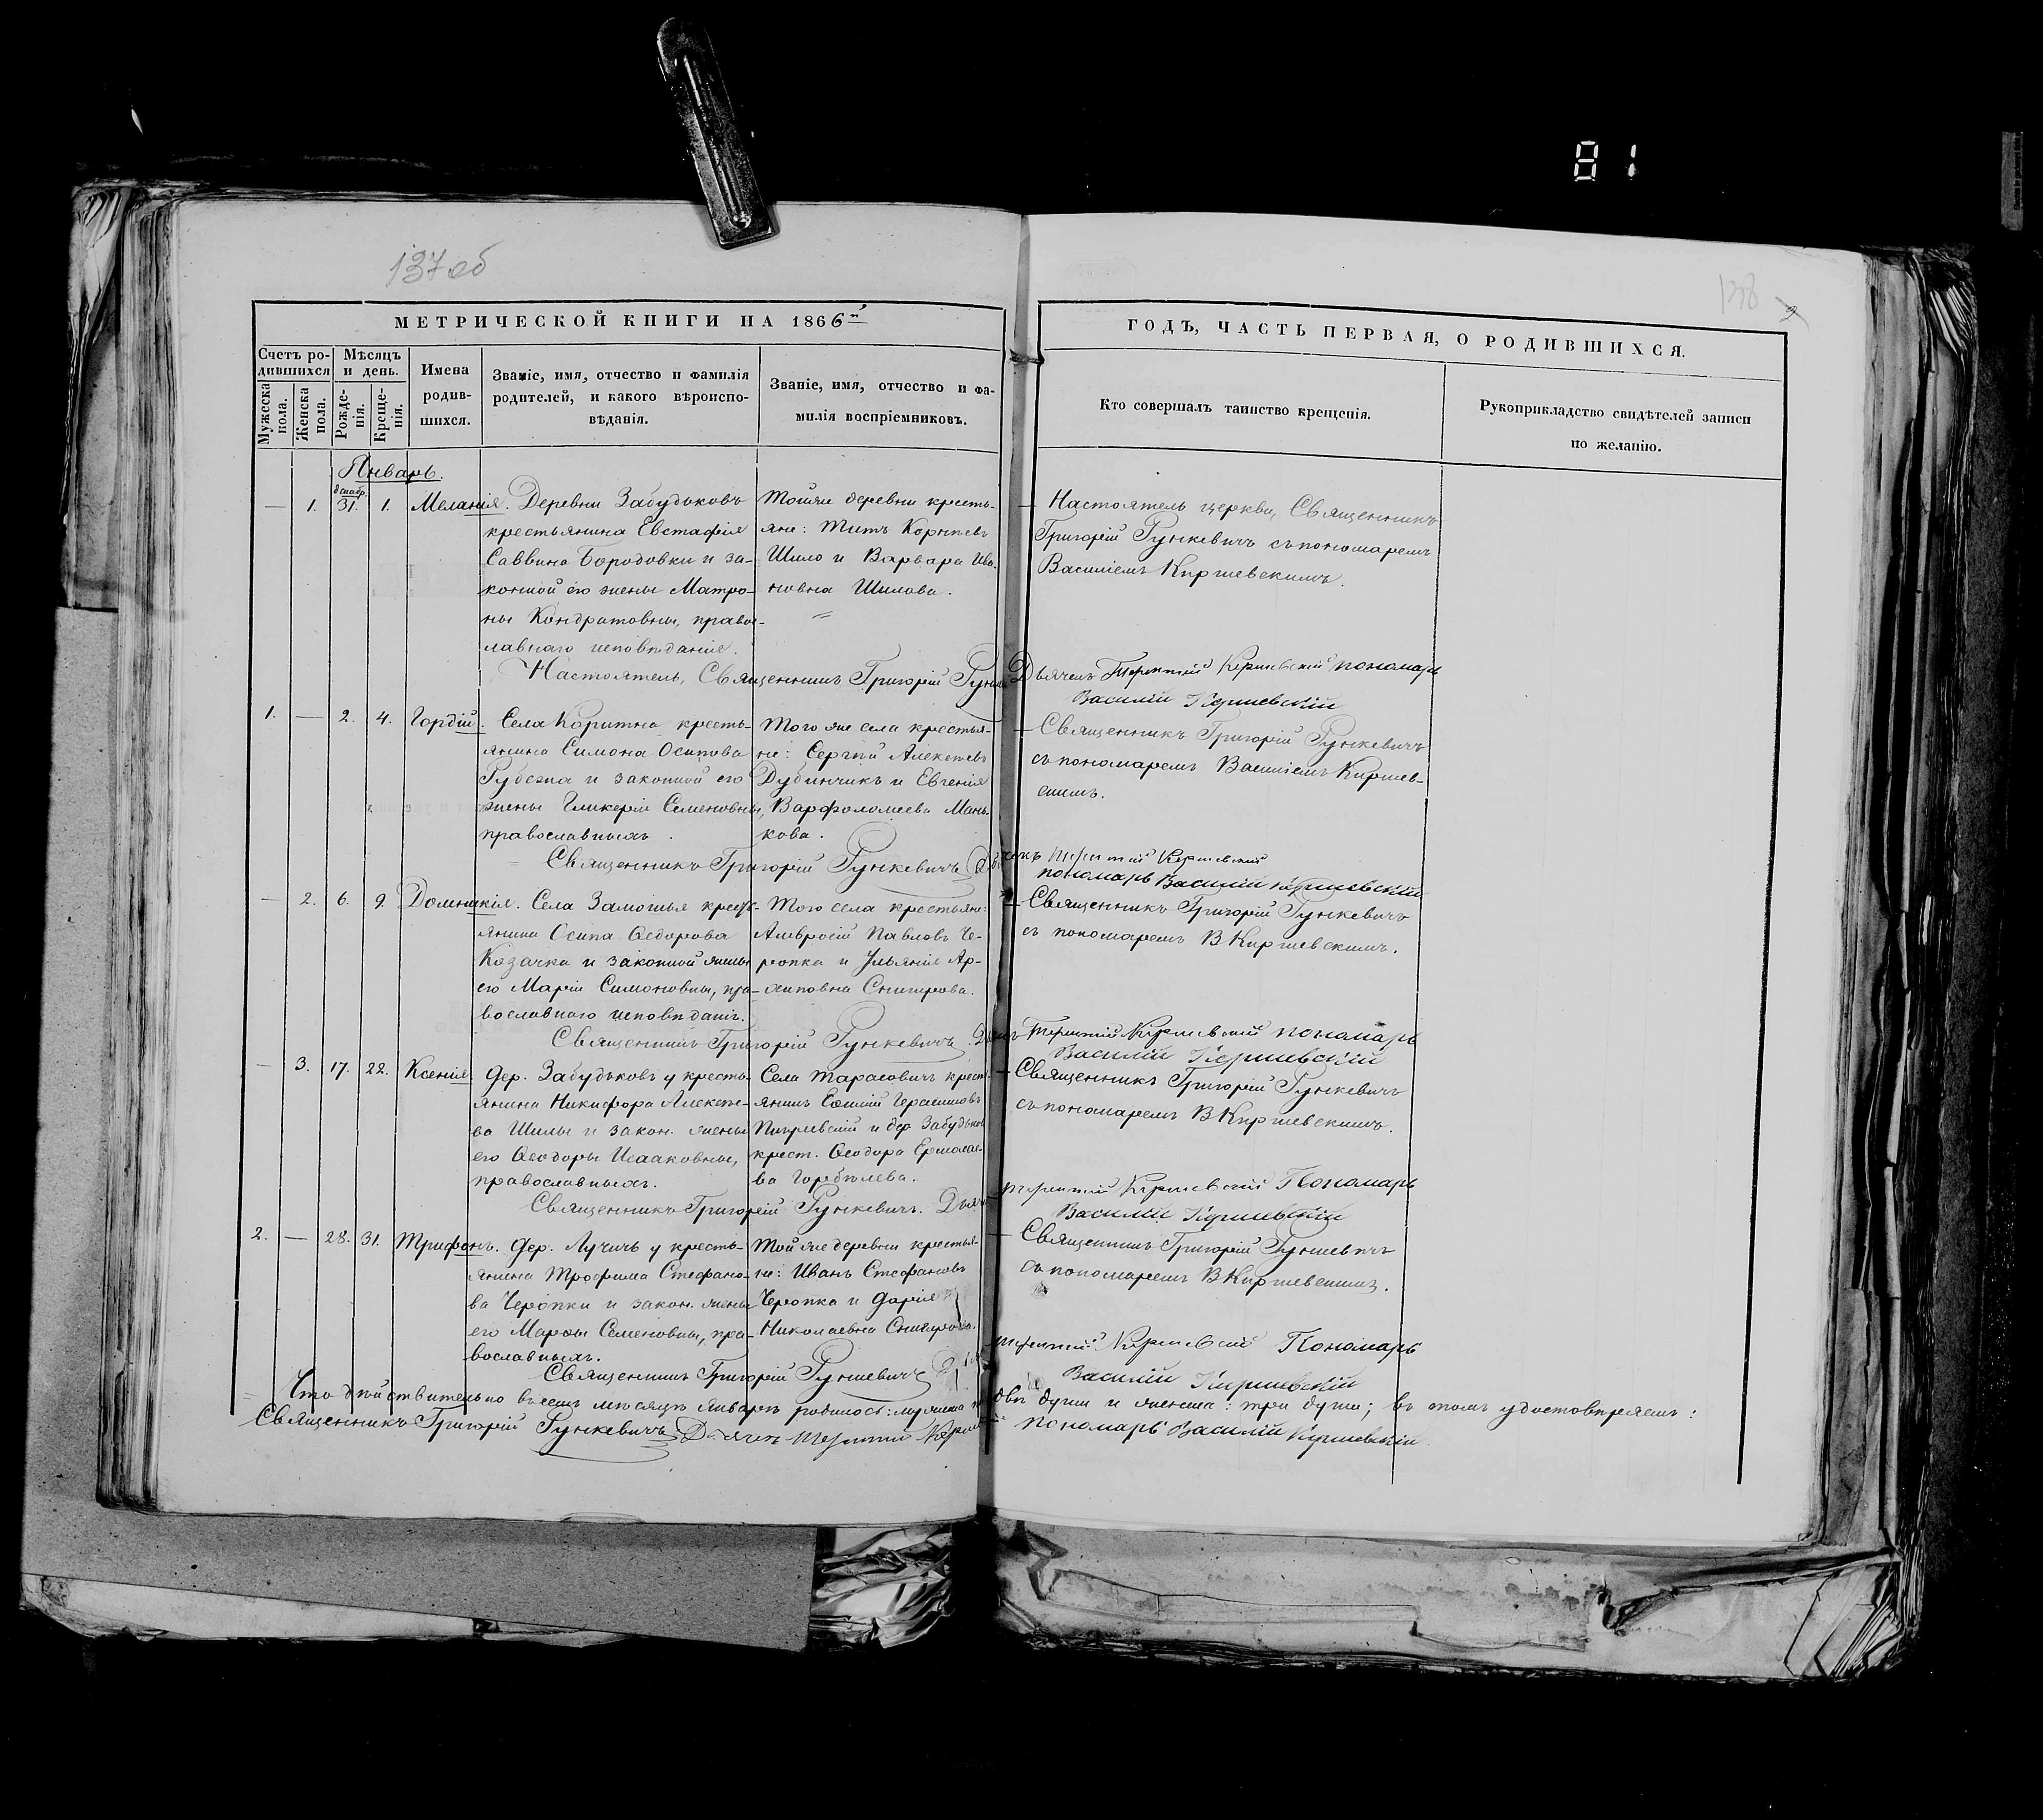 81
137 об
138
МЕТРИЧЕСКОЙ КНИГИ НА 1866й
ГОДЪ, ЧАСТЬ ПЕРВАЯ, О РОДИВШИХСЯ.
Счетъ ро-
дившихся
Мужеска
пола.
Женска
пола.
Мѣсяцъ
и день.
Рожде-
нія.
Креще-
нія.
Имена
родив-
шихся.
Званіе, имя, отчество и фамилія
родителей, и какого вѣроиспо-
вѣданія.
Званіе, имя, отчество и фа-
милія воспріемниковъ.
Кто совершалъ таинство крещенія.
Рукоприкладство свидѣтелей записи
по желанію.
Январь.
декабр.
— 1. 31. 1. Меланія.
Деревни Забудьковъ
крестьянина Евстафія
Саввина Бородовки и за-
конной его жены Матро-
ны Кондратовны, право-
славнаго исповѣданія.
Тойже деревни кресть-
яне: Титъ Корнѣевъ
Шило и Варвара Ива-
новна Шилова.
— Настоятель церкви, Священникъ
Григорій Рункевичъ съ пономаремъ
Василіемъ Киршевскимъ.
Настоятель, Священникъ Григорій Дьячекъ Терентій Киршевскій пономарь
Василій Киршевскій
1. — 2. 4. Гордій.
Села Коритна кресть-
янина Симона Осипова
Рубежа и законной его
жены Гликеріи Семеновны,
православныхъ.
Того же села крестья-
не: Сергѣй Алексѣевъ
Дубинчикъ и Евгенія
Варфоломеева Мань-
кова.
— Священникъ Григорій Рункевичъ
съ пономаремъ Василіемъ Киршев-
скимъ.
Священникъ Григорій Рункевичъ Дьячекъ Терентій Киршевскій
пономарь Василій Киршевскій
— 2. 6. 9. Домникія.
Села Замошья кресть-
янина Осипа Ѳедорова
Козачка и законной жены
его Маріи Симоновны, пра-
вославнаго исповѣданія.
Того села крестьяне:
Амвросій Павловъ Че-
ропка и Ульянія Ар-
хиповна Снигирова.
— Священникъ Григорій Рункевичъ
съ пономаремъ В Киршевскимъ.
Священникъ Григорій Рункевичъ. Дьячекъ Терентій Киршевскій пономарь
Василій Киршевскій
— 3. 17. 22. Ксенія.
Дер. Забудьковъ у кресть-
янина Никифора Алексѣе-
ва Шилы и закон. жены
его Ѳеодоры Исааковны,
православныхъ.
Села Тарасовичъ крест-
янинъ Герасимовъ
и дер Забудьков
крест. Ѳеодора Ермолае-
ва Горбылева.
— Священникъ Григорій Рункевичъ
съ пономаремъ В Киршевскимъ.
Священникъ Григорій Рункевичъ. Дьячекъ Терентій Киршевскій Пономарь
Василій Киршевскій
2. — 28. 31. Трифонъ.
Дер. Лучичъ у кресть-
янина Трофима Стефано-
ва Черопки и закон. жены
его Марѳы Семеновны, пра-
вославныхъ.
Той же деревни крестья-
не: Иванъ Стефановъ
Черопка и Дарія
Николаевна Снигирова.
— Священникъ Григорій Рункевичъ
съ пономаремъ В Киршевскимъ.
Священникъ Григорій Рункевичъ Терентій Киршевскій Пономарь
Василій Киршевскій
Что дѣйствительно въ семъ мѣсяцѣ Январѣ родилось: мужеска двѣ души и женска: три души; въ томъ удостовѣряемъ:
Священникъ Григорій Рункевичъ Дьячекъ Терентій Киршевскій Пономарь Василій Киршевскій